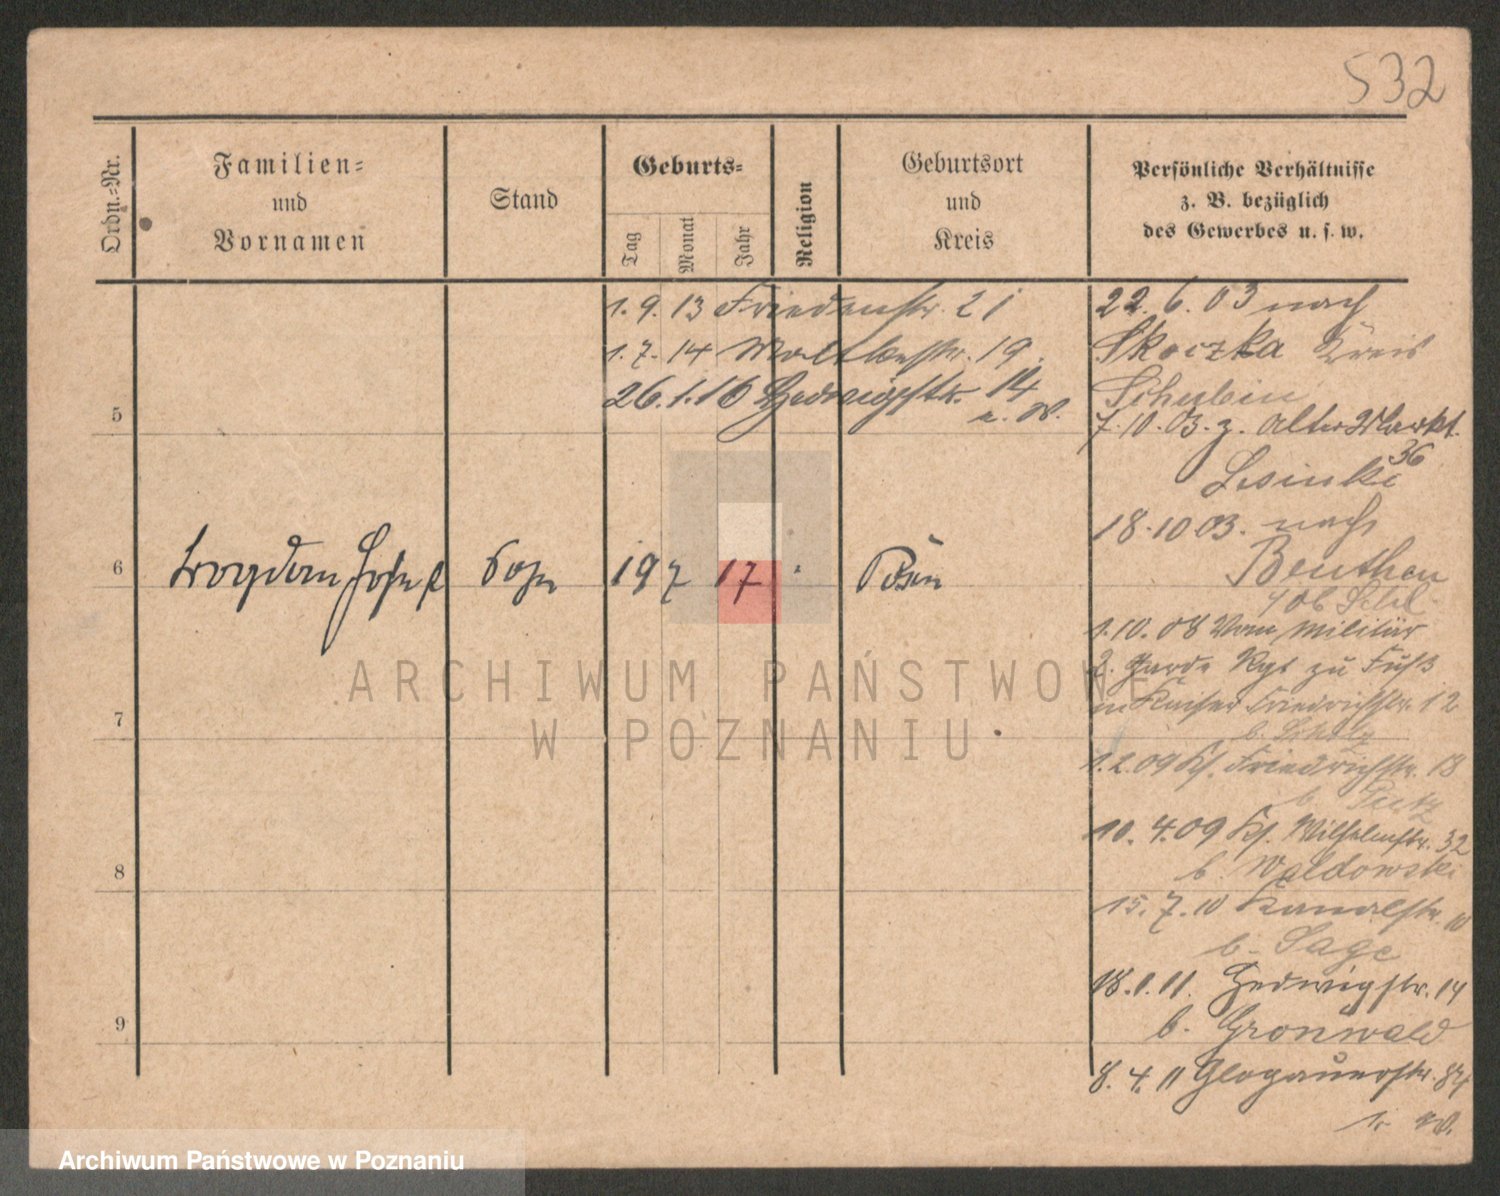 532
Ordn.=Nr.
Familien=
und
Vornamen
Stand
Geburts=
Tag
Monat
Jahr
Religion
Geburtsort
und
Kreis
Persönliche Verhältnisse
z. B. bezüglich
des Gewerbes u. s. w.
1.9.13 Friedenstr. 21
1.7.14 19
26.1.16 Hedwigstr. 14
22.6.03 nach
Skoczka Kreis
Schubin
7.10.03. z. Alter Markt.
36
18.10.03. nach
Beuthen
1.10.08 Vom Militär
2. Garde Rgt zu Fuß
Kaiser Friedrichstr. 12
1.2.09 Ks. Friedrichstr. 13
10.4.09 Ks. Wilhelmstr. 32
b. Waldowski
15.7.10 Kanalstr. 10
b. Sage
18.1.11. Hedwigstr. 14
b. Gronwald
8.4.11 Glogauerstr. 84
5
6
Josef Sohn 19 7 17 Posen
7
8
9
ARCHIWUM PAŃSTWOWE
W POZNANIU
Archiwum Państwowe w Poznaniu